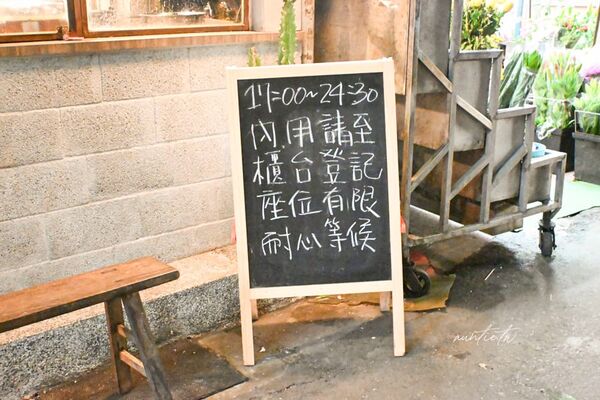 17:00~24:30
內用請至
櫃台登記
座位有限
耐心等候